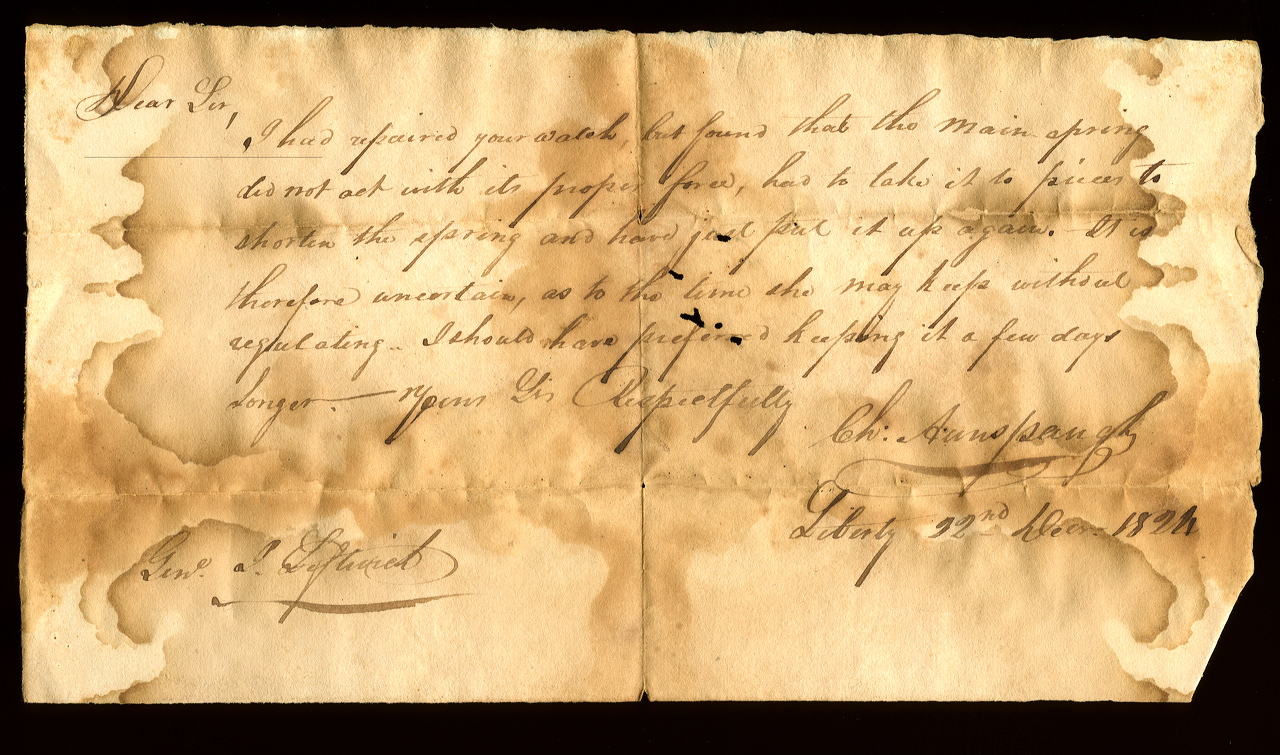 Dear Sir,
I had repaired your watch, but found that the main spring
did not act with its proper force, had to take it to pieces to
shorten the spring and have just put it up again. – It is
therefore uncertain, as to the time she may keep without
regulating – I should have preferred keeping it a few days
longer. — Yours Sir Respectfully
Ch: Aunspaugh
Liberty 22nd Decr. 1824
Genl. J. Leftwich